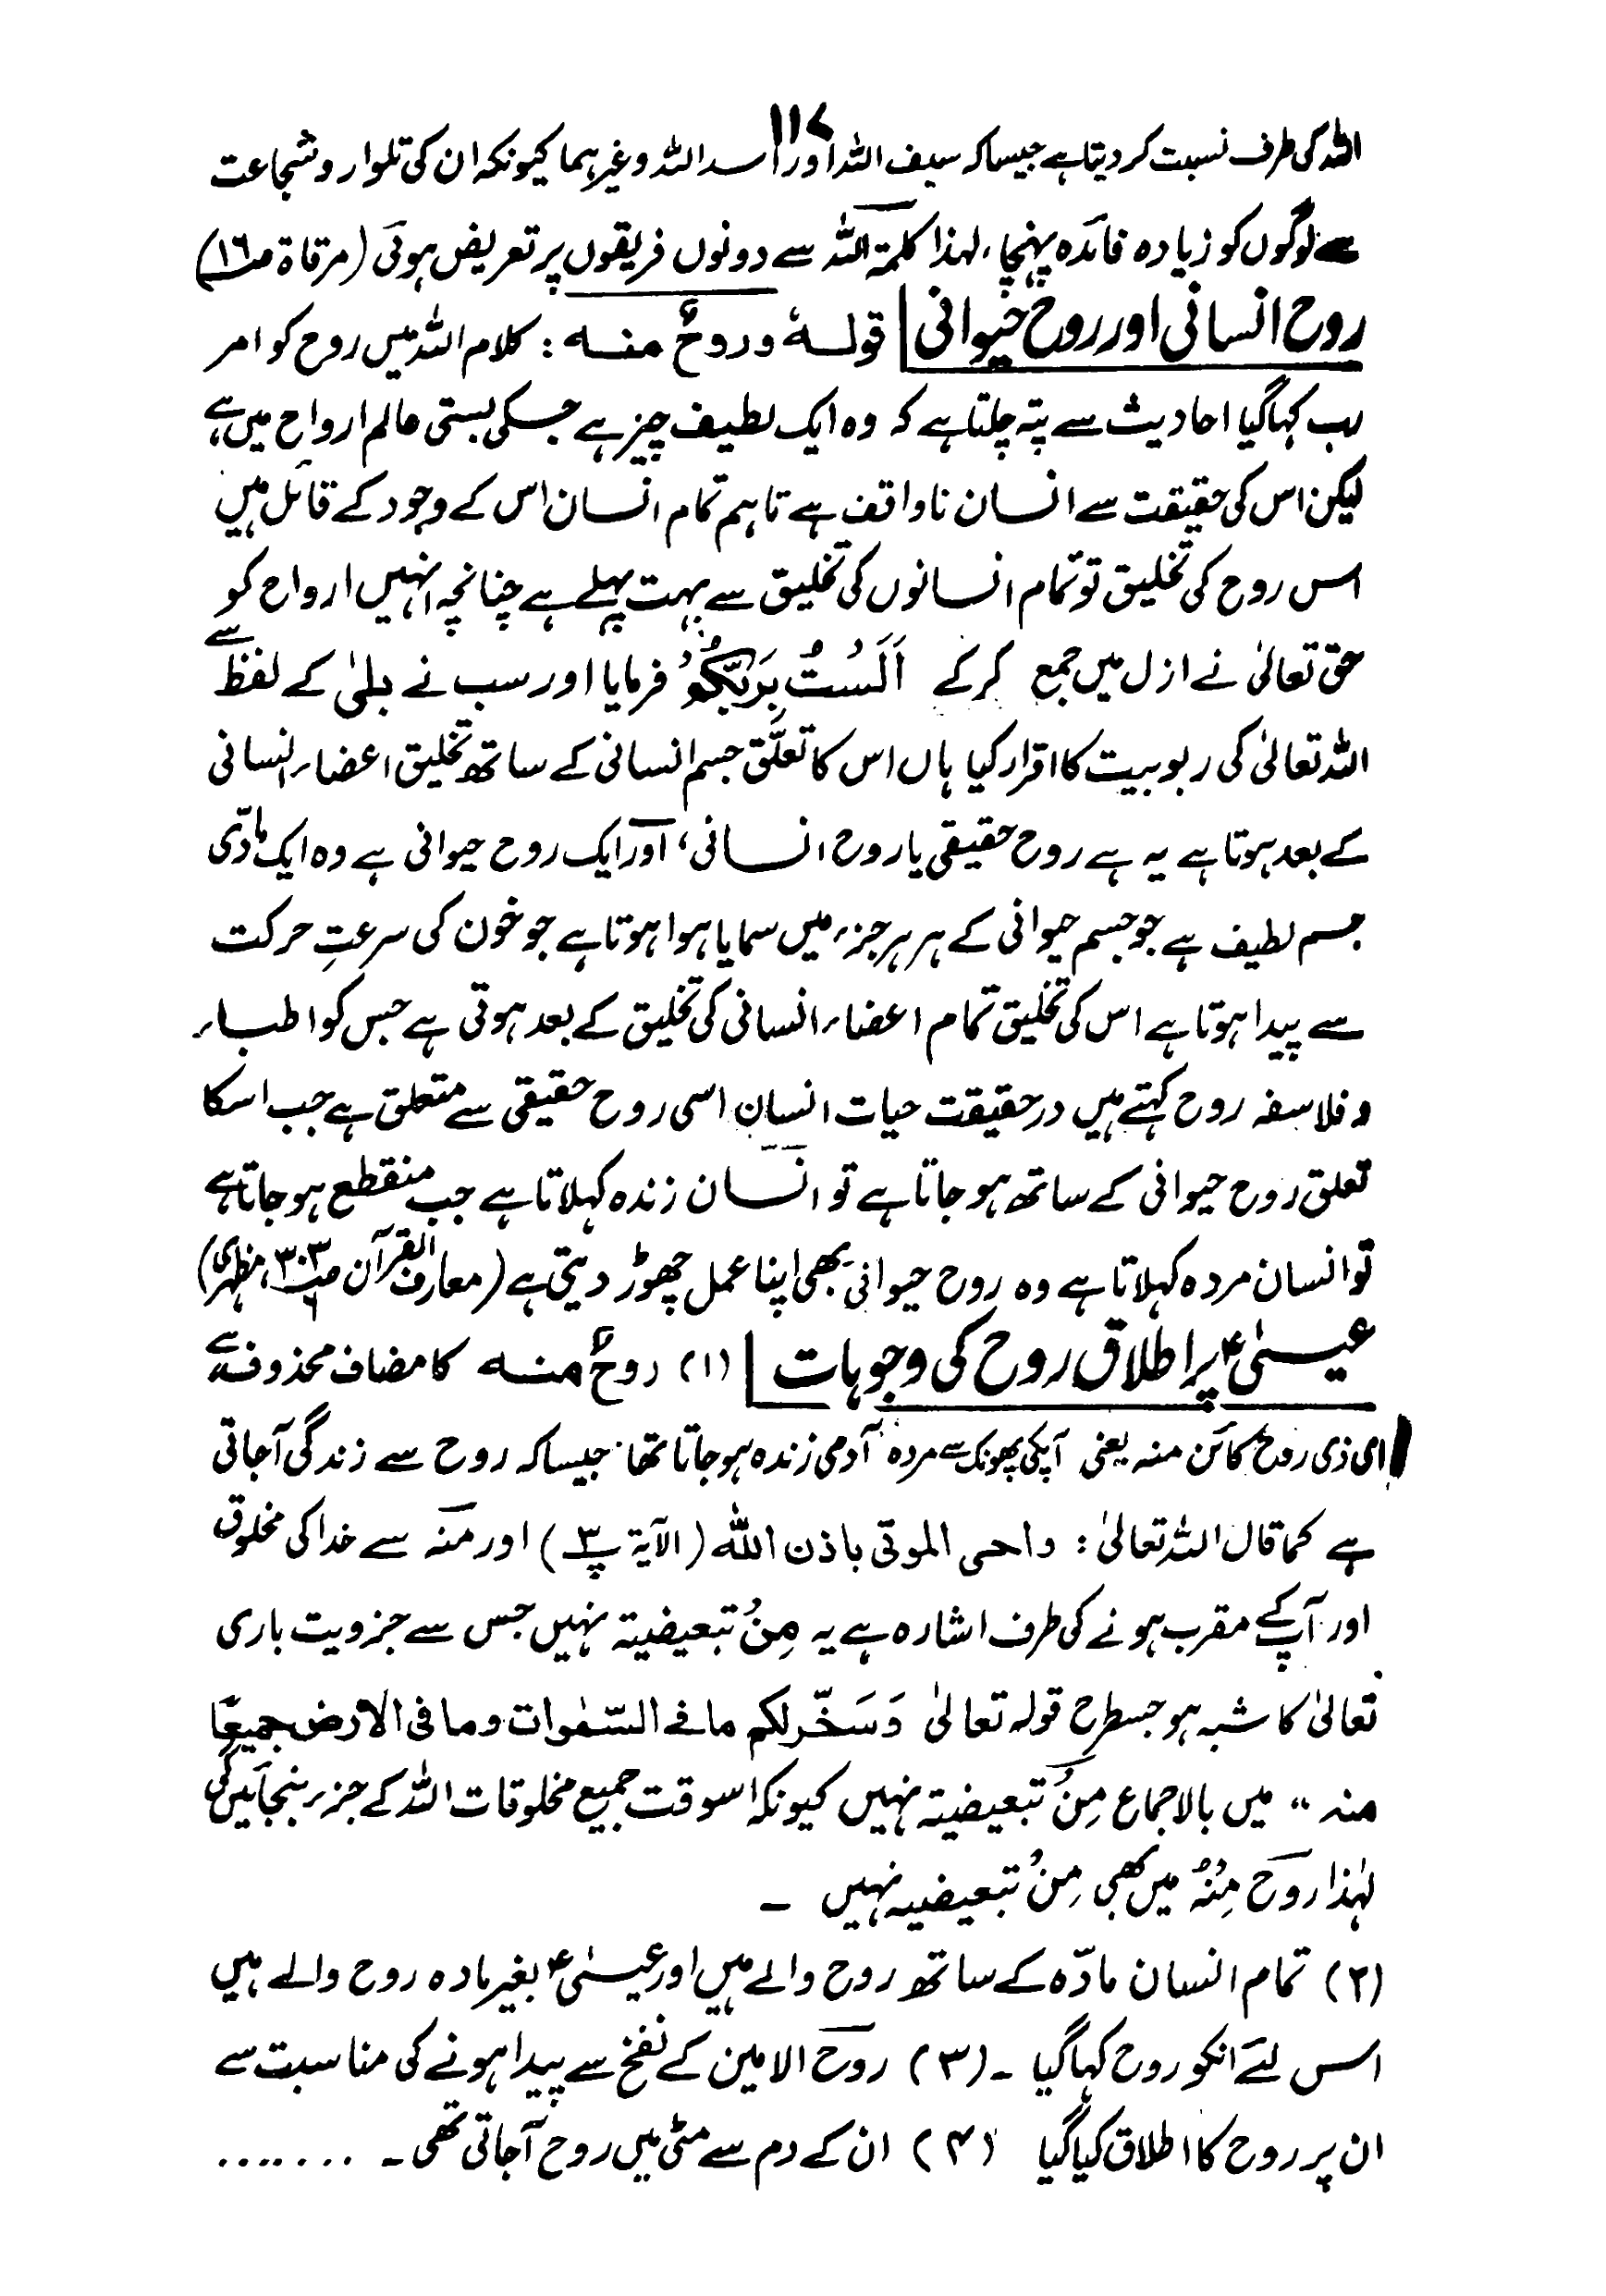 ۱۱۷
اللہ کی طرف نسبت کر دیتا ہے جیسا کہ سیف اللہ اور اسد اللہ وغیرہما کیونکہ ان کی تلوار و شجاعت
سے لوگوں کو زیادہ فائدہ پہنچا، لہذا کلمۃ اللہ سے دونوں فریقوں پر تعریض ہوئی (مرقاۃ
روح انسانی اور روح حیوانی | قولہٗ وروحٌ منہ : کلام اللہ میں روح کو امر
رب کہا گیا احادیث سے پتہ چلتا ہے کہ وہ ایک لطیف چیز ہے جسکی بستی عالم ارواح میں ہے
لیکن اس کی حقیقت سے انسان ناواقف ہے تاہم تمام انسان اس کے وجود کے قائل ہیں
اس روح کی تخلیق تو تمام انسانوں کی تخلیق سے بہت پہلے ہے چنانچہ انہیں ارواح کو
حق تعالیٰ نے ازل میں جمع کرکے اَلَسْتُ بِرَبِّکُمْ فرمایا اور سب نے بلیٰ کے لفظ سے
اللہ تعالیٰ کی ربوبیت کا اقرار کیا ہاں اس کا تعلّق جسم انسانی کے ساتھ تخلیق اعضاء انسانی
کے بعد ہوتا ہے یہ ہے روح حقیقی یا روح انسانی، اور ایک روح حیوانی ہے وہ ایک مادّی
جسم لطیف ہے جو جسم حیوانی کے ہر ہر جزء میں سمایا ہوا ہوتا ہے جو خون کی سرعتِ حرکت
سے پیدا ہوتا ہے اس کی تخلیق تمام اعضاء انسانی کی تخلیق کے بعد ہوتی ہے جس کو اطباء
و فلاسفہ روح کہتے ہیں درحقیقت حیات انسان اسی روح حقیقی سے متعلق ہے جب اسکا
تعلق روح حیوانی کے ساتھ ہو جاتا ہے تو انسان زندہ کہلاتا ہے جب منقطع ہو جاتا ہے
تو انسان مردہ کہلاتا ہے وہ روح حیوانی بھی اپنا عمل چھوڑ دیتی ہے (معارف القرآن ص۳۰۳، مظہری)
عیسیٰؑ پر اطلاق روح کی وجوہات | (۱) روحٌ منہ کا مضاف محذوف ہے
ای ذی روح کائن منہ یعنی آپکی پھونک سے مردہ آدمی زندہ ہو جاتا تھا جیسا کہ روح سے زندگی آجاتی
ہے کما قال اللہ تعالیٰ : واحی الموتی باذن اللہ (الآیۃ پ۳) اور منہ سے خدا کی مخلوق
اور آپ کے مقرب ہونے کی طرف اشارہ ہے یہ مِنْ تبعیضیۃ نہیں جس سے جزویت باری
تعالیٰ کا شبہ ہو جسطرح قولہ تعالیٰ وَسَخَّر لکم ما فے السّمٰوات وما فی الارض جمیعًا
منہ " میں بالاجماع مِنْ تبعیضیۃ نہیں کیونکہ اسوقت جمیع مخلوقات اللہ کے جزء بنجائیں گی
لہٰذا روح مِنْہُ میں بھی مِنْ تبعیضیہ نہیں ۔
(۲) تمام انسان مادّہ کے ساتھ روح والے ہیں اور عیسیٰؑ بغیر مادہ روح والے ہیں
اس لئے انکو روح کہا گیا ۔ (۳) روح الامین کے نفخ سے پیدا ہونے کی مناسبت سے
ان پر روح کا اطلاق کیا گیا (۴) ان کے دم سے مٹی میں روح آجاتی تھی ۔ .......